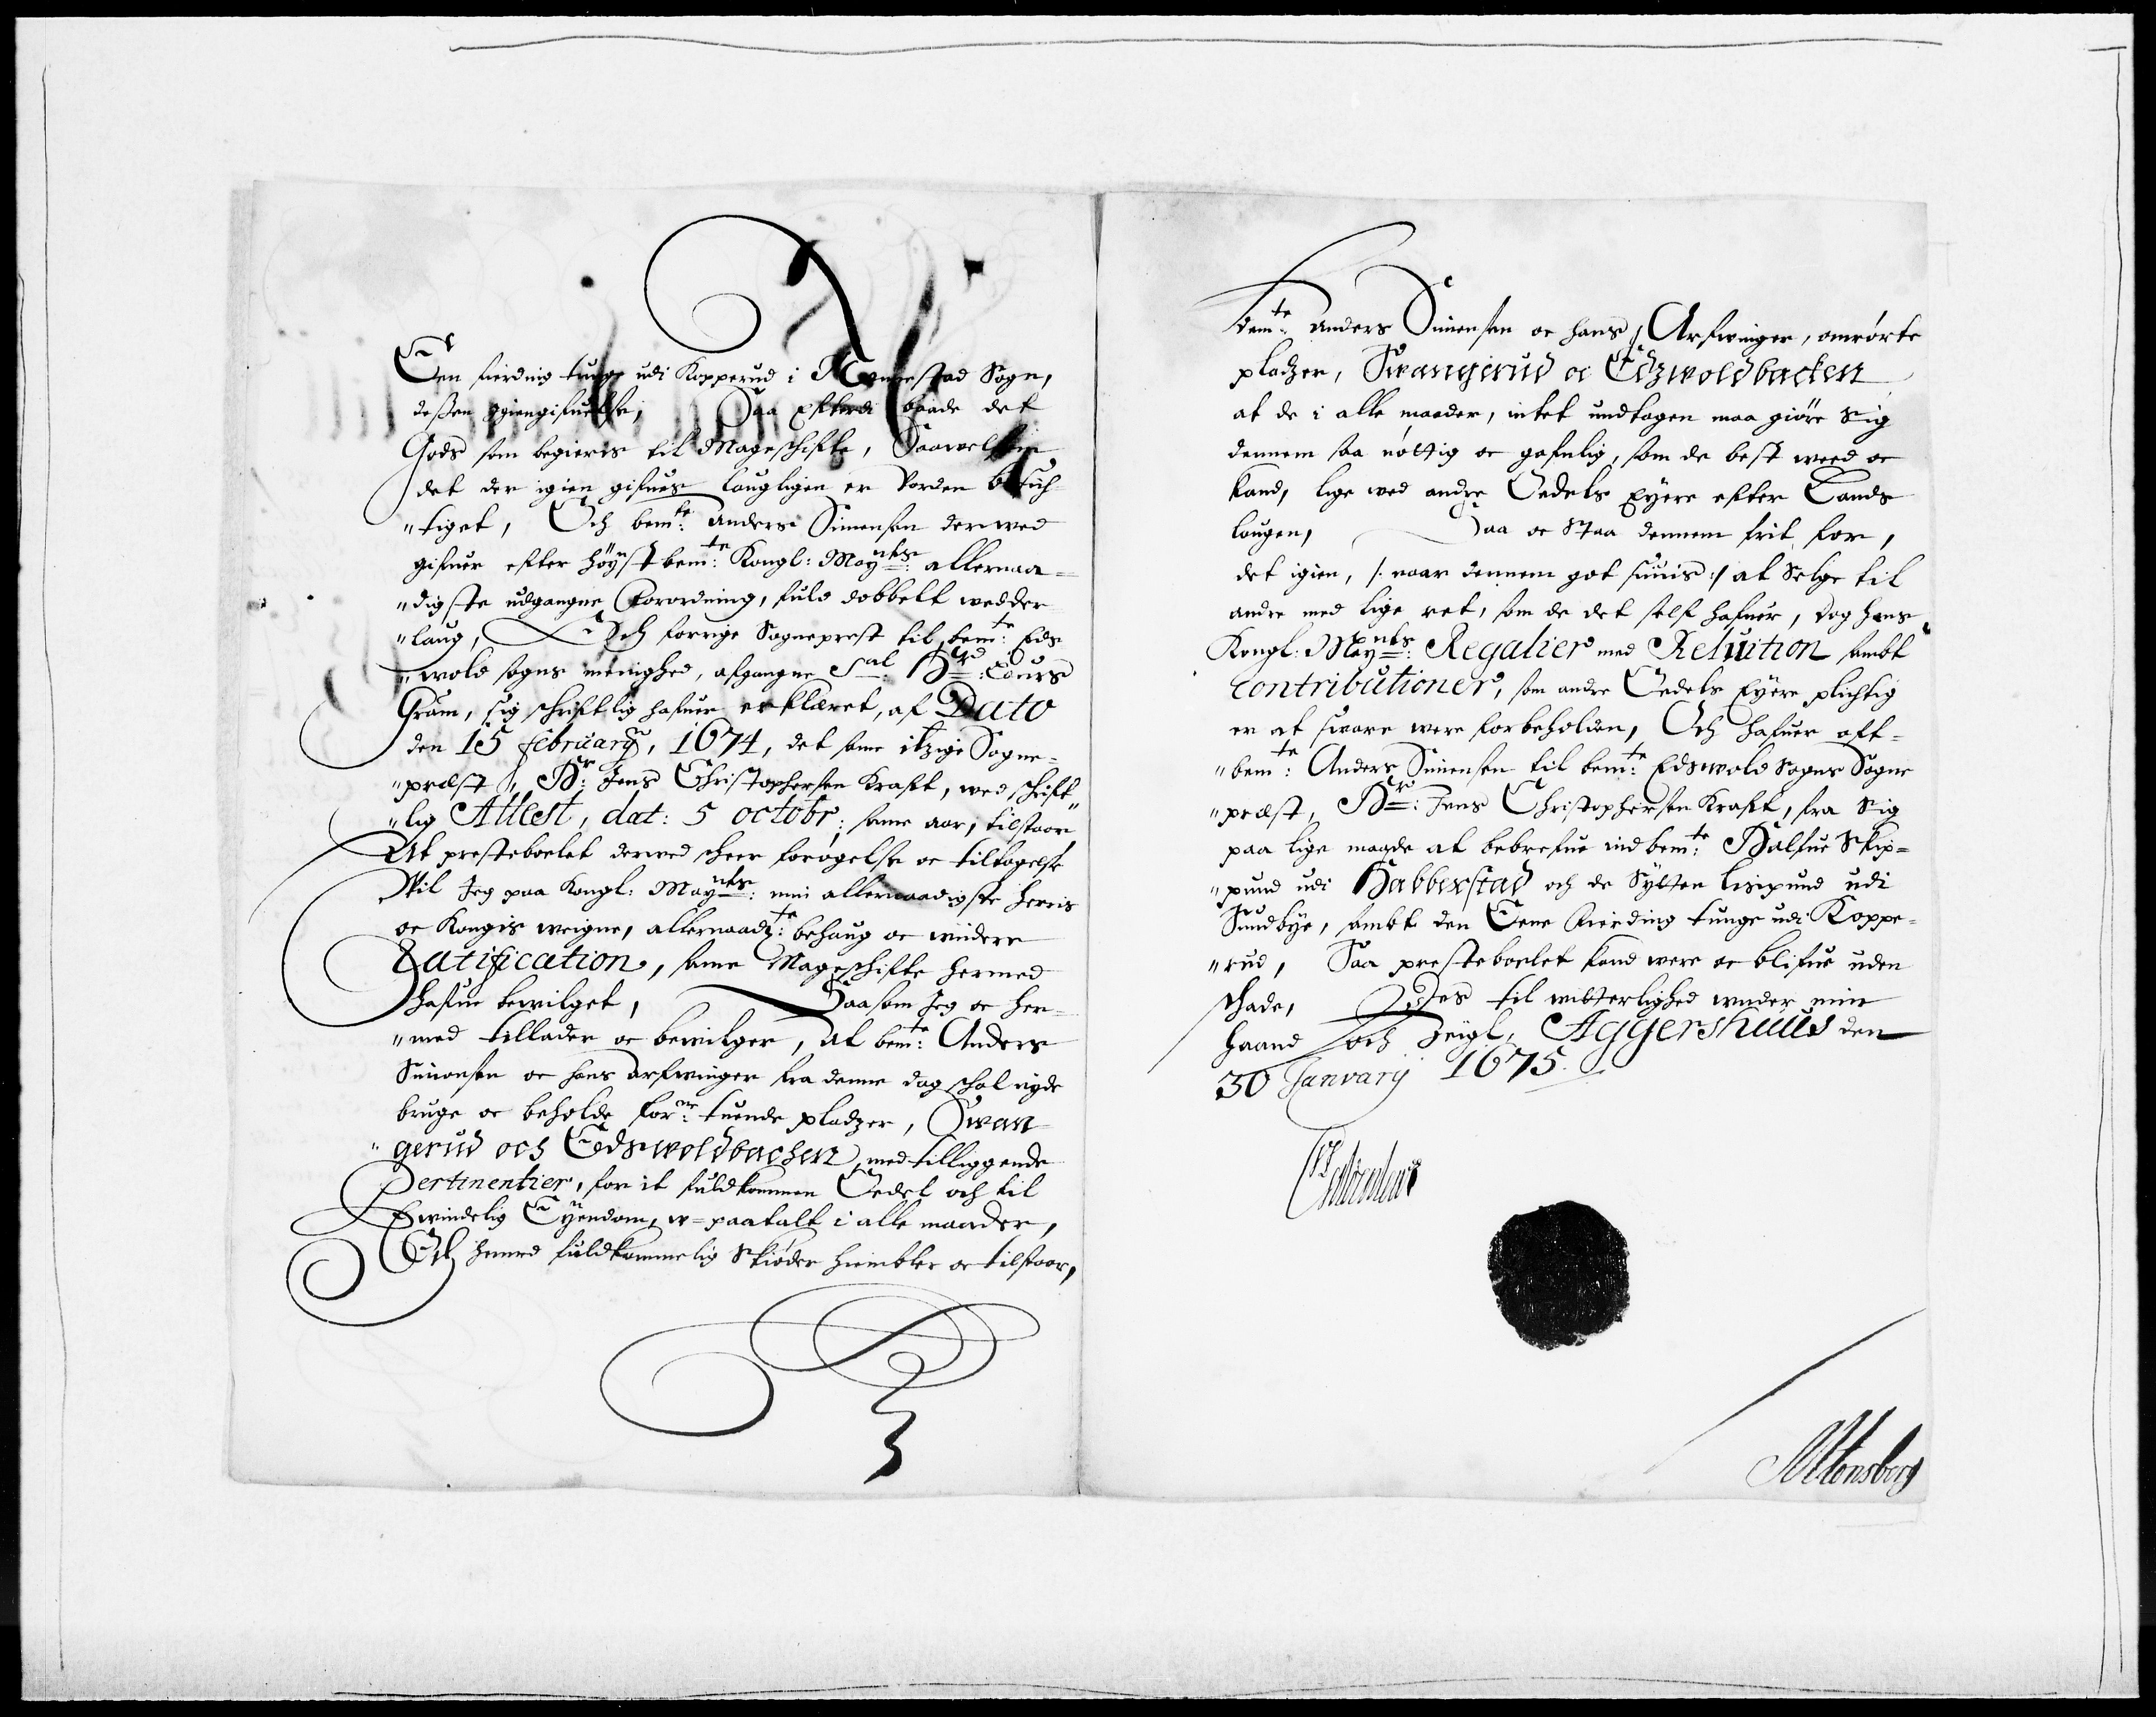 Een fierding tunge udi Kopperud i Nannestad Sogn,
deßen igiengifuelse, Saa Efterdi baade det
Gods som begieris til Mageschifte, Saawelsom
det der igien gifues lougligen er Vorden besich-
"tiget, Och bemte: Anders Simensen derwed
gifuer efter höyst bemte: Kongl: Maytts: allernaa-
"digste udgangne Forordning, fuld dobbelt wedder
"laug, Och forrige Sogneprest til bemte: Eds
"wold sogns menighed, afgangne Sal: Hr: Lours
Gram, sig schriftlig hafuer erklæret, af Dato
den 15 februarij, 1674, det same itzige Sogne-
"præst, Hr: Jens Christophersen Kraft, wed schrift
"lig Attest, dat: 5 octobr: same aar, tilstaar
At presteboelet derwed scheer forögelse oc tiltagelse
Wil Jeg paa Kongl: Maytts: min allernaadigste herris
oc Kongis weigne, allernaadgte: behaug oc widere
Ratification, same Mageschifte hermed
hafue bewilget, Saasom Jeg oc her-
"med tillader oc bewilger, At bemte: Anders
Simonsen oc hans Arfwinger fra denne dag schal nyde
bruge oc beholde forne: tuende pladzer, Swan-
"gerud och Edswoldbachen, med tilliggende
Pertinentier, for it fuldkommen Oedel och til
Ewindelig Eyendom, w-paatalt i alle maader,
Och hermed fuldkommelig Skiöder hiembler oc tilstaar,
bemte: Anders Simensen oc hans Arfwinger, omrörte
pladzer, Swangerud oc Edzwoldbacken
at de i alle maader, intet undtagen maa giöre Sig
dennem saa nöttig oc gafnlig, som de best weed oc
kand, lige wed andre Oedels Eyere efter Lands
lougen, Saa oc Staa dennem frit for,
det igien, /: naar dennem got siuis :/ at Selge til
andre med lige ret, som de det self hafuer, dog hans
Kongl: Maytts: Regalier med Reluition sambt
Contributioner, som andre Oedels Eyere plichtig
er at suare were forbeholden, Och hafuer oft-
"bemte: Anders Simensen til bemte: Edswold Sogns Sogne
"præst, Hr: Jens Christophersen Kraft, fra Sig
paa lige maade at bebrefue ind bemte: Halfue Skip-
"pund udi Habberstad och de Sytten lispund udi
Sundbye, sambt den Eene fierding tunge udi Koppe-
"rud, Saa presteboelet kand were oc blifue uden
schade, Des til witterlighed under min
haand och Seigl, Aggershuus den
30 Janvarij 1675.